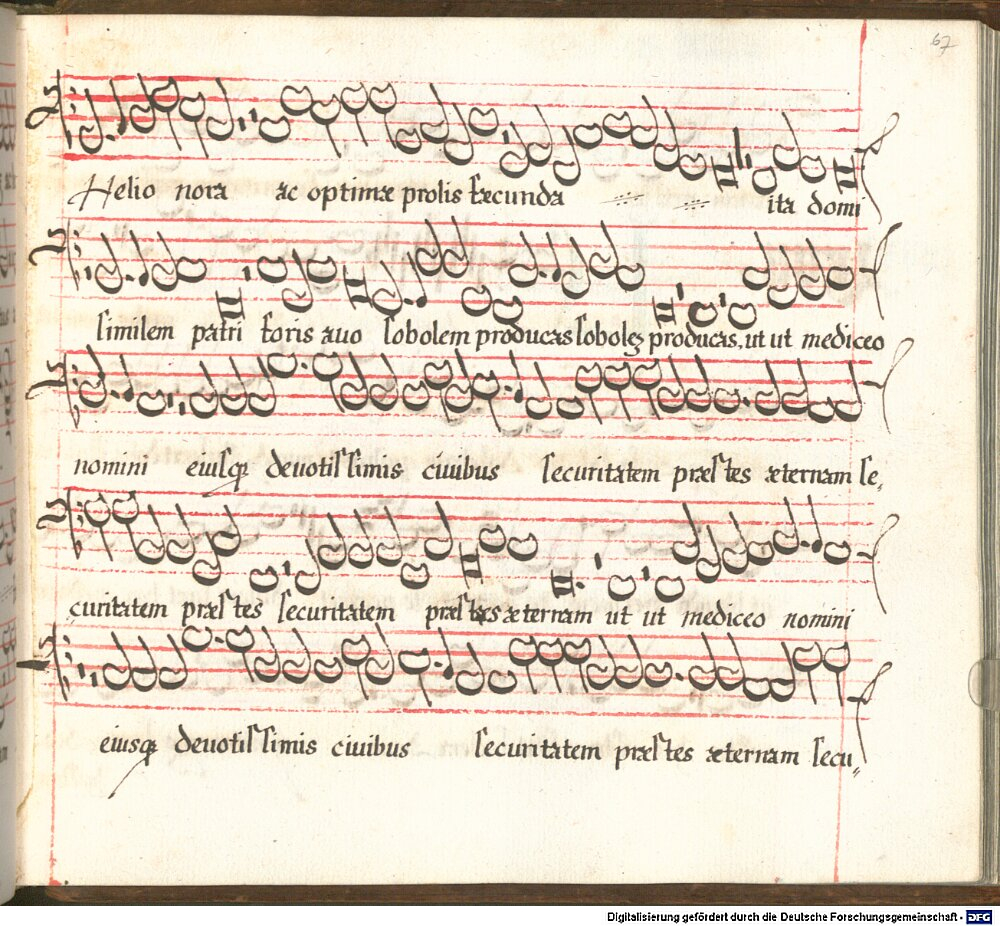 67
Helio nora ac optimæ prolis fæcunda ita domi
similem patri foris auo sobolem producas soboleȝ producas, ut ut mediceo
nomini eiusqꝫ deuotissimis ciuibus securitatem præstes æternam se,
curitatem præstes securitatem præstæs æternam ut ut mediceo nomini
eiusqꝫ deuotissimis ciuibus securitatem præstes æternam secu"
Digitalisierung gefördert durch die Deutsche Forschungsgemeinschaft - DFG